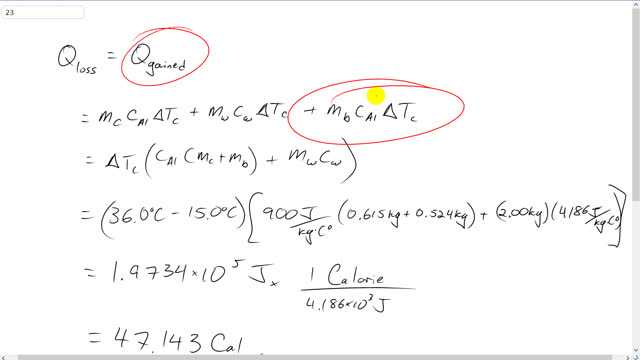 23
Q_loss = Q_gained
= m_c C_Al ΔT_c + m_w C_w ΔT_c + m_b C_Al ΔT_c
= ΔT_c (C_Al (m_c + m_b) + m_w C_w)
= (36.0°C - 15.0°C) [900 J/kg·C° (0.615kg + 0.524kg) + (2.00kg)(4186 J/kg·C°)]
= 1.9734 × 10^5 J × 1 Calorie / 4.186×10^3 J
= 47.143 Cal